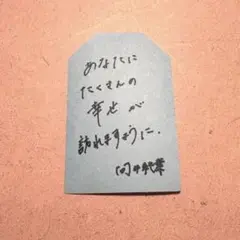 あなたに
たくさんの
幸せが
訪れますように.